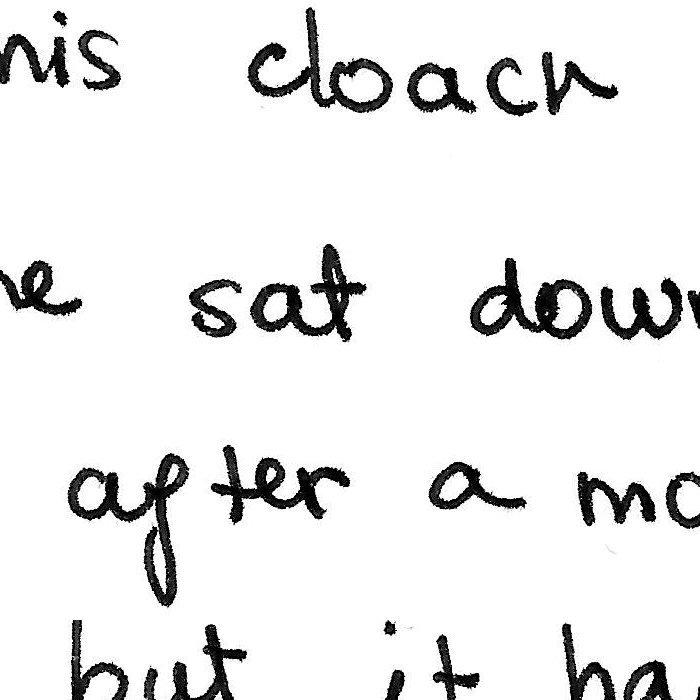 his cloach
he sat down
after a mo
but it ha